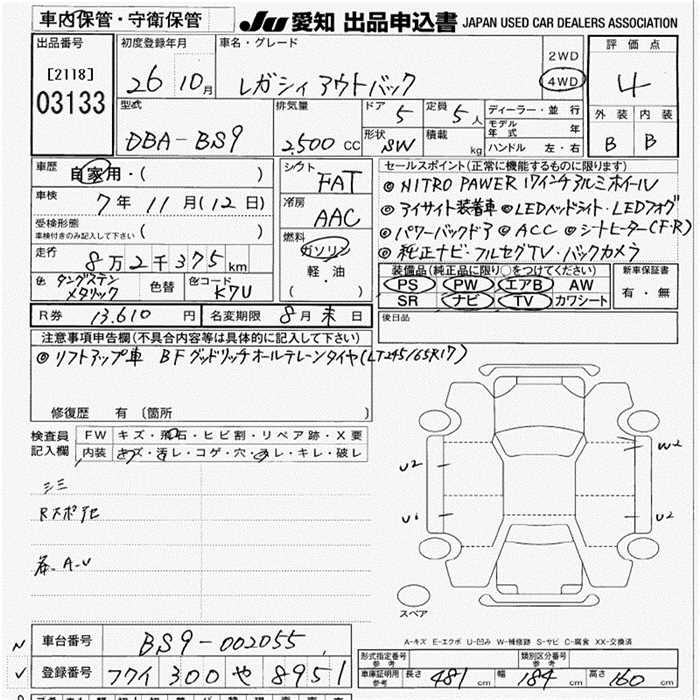 車内保管・守衛保管 JU 愛知 出品申込書 JAPAN USED CAR DEALERS ASSOCIATION
出品番号 初度登録年月 車名・グレード 評価点
[2118] 26 10月 レガシィ アウトバック 2WD 4WD 4
03133 型式 排気量 ドア 5 定員 5人 ディーラー・並行 外装 内装
DBA-BS9 2,500 CC 形状 SW 積載 kg モデル年式 年 B B
ハンドル 左・右
車歴 自家用・( ) シフト FAT セールスポイント(正常に機能するものに限ります)
車検 7年11月(12日) ◎ NITRO PAWER 17インチアルミホイル
受検形態 冷房 AAC ◎ アイサイト装着車 ◎ LEDヘッドライト・LEDフォグ
車検付きのみ記入して下さい ( ) ◎ パワーバックドア ◎ ACC ◎ シートヒーター(F・R)
走行 8万2千375km 燃料 ガソリン ◎ 純正ナビ・フルセグTV・バックカメラ
軽・油 装備品(純正品に限り○をつけてください) 新車保証書
色 タングステンメタリック 色替 色コード K7U ( ) PS PW エアB AW 有・無
SR ナビ TV カワシート
R券 13,610円 名変期限 8月末日 後日品
注意事項申告欄(不具合内容等は具体的に記入して下さい)
◎ リフトアップ車 BFグッドリッチオールテレーンタイヤ(LT245/65R17)
修復歴 有〔箇所 〕
検査員 FW キズ・飛石・ヒビ割・リペア跡・X要
記入欄 内装 キズ・汚レ・コゲ・穴・スレ・キレ・破レ
W2
U2
U1 U2
Rスポ
スペア
A-キズ E-エクボ U-凹み W-補修跡 S-サビ C-腐食 XX-交換済
車台番号 BS9-002055 形式指定番号 参考 類別区分番号 参考
登録番号 フクイ 300 や 8951 車庫証明用 参考 長さ 481 cm 幅 184 cm 高さ 160 cm